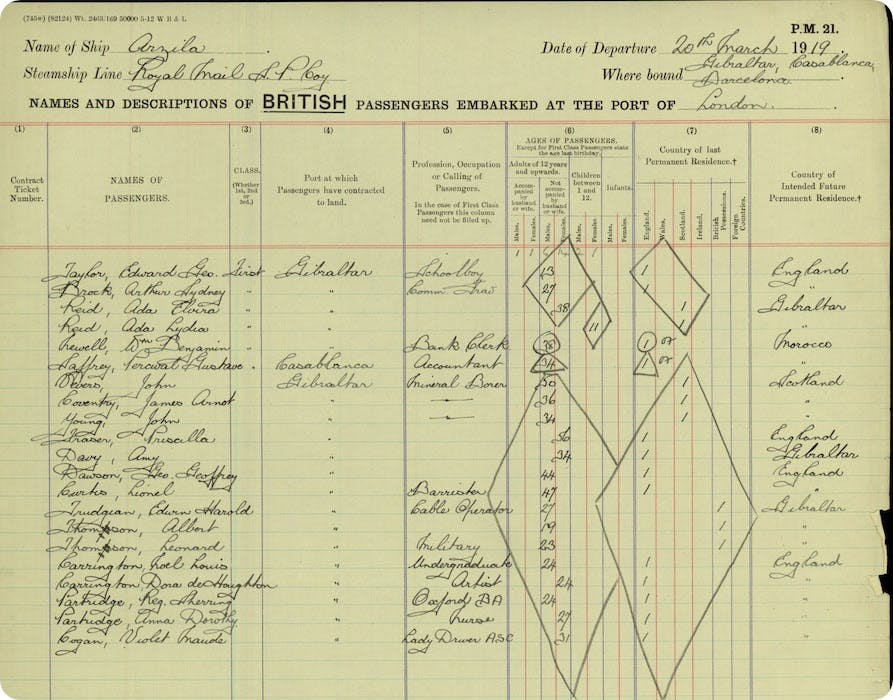 (745*) (82124) Wt. 2463/169 50000 5-12 W B & L
P.M. 21.
Name of Ship Arzila. Date of Departure 20th March 1919.
Steamship Line Royal Mail S. P. Coy Where bound Gibraltar, Casablanca, Barcelona.
NAMES AND DESCRIPTIONS OF BRITISH PASSENGERS EMBARKED AT THE PORT OF London.
(1) (2) (3) (4) (5) (6) (7) (8)
Contract Ticket Number.
NAMES OF PASSENGERS.
CLASS. (Whether 1st, 2nd or 3rd.)
Port at which Passengers have contracted to land.
Profession, Occupation or Calling of Passengers.
In the case of First Class Passengers this column need not be filled up.
AGES OF PASSENGERS.
Except for First Class Passengers state the age last birthday.
Adults of 12 years and upwards. Children between 1 and 12. Infants.
Accompanied by husband or wife. Not accompanied by husband or wife.
Males. Females. Males. Females. Males. Females. Males. Females.
Country of last Permanent Residence.†
England. Wales. Scotland. Ireland. British Possessions. Foreign Countries.
Country of Intended Future Permanent Residence.†
Taylor, Edward Geo. First Gibraltar Schoolboy 13 1 England
Brock, Arthur Sydney " " Comm. Trav 27 1 "
Reid, Ada Elvira " " 38 1 Gibraltar
Reid, Ada Lydia " " 11 1 "
Wm Benjamin " Bank Clerk 38 1 Morocco
Jaffrey, Percival Gustave . Casablanca Accountant 34 1 "
John Gibraltar Mineral Borer 50 1 Scotland
Coventry, James Arnot " 36 1 "
Young, John " 34 1 "
Fraser, Priscilla " 56 1 England
Davy, Amy " 34 1 Gibraltar
Dawson, Geo. Geoffrey " 44 1 England
Curtis, Lionel " Barrister 47 1 "
Trudgian, Edwin Harold " Cable Operator 27 1 Gibraltar
Thompson, Albert " 19 1 "
Thompson, Leonard " Military 23 1 "
Carrington, Noel Louis " Undergraduate 24 1 England
Carrington, Dora de Houghton " Artist 24 1 "
Partridge, Reg. Sherring " Oxford BA 24 1 "
Partridge, Anna Dorothy " Nurse 27 1 "
Cogan, Violet Maude " Lady Driver ASC 31 1 "